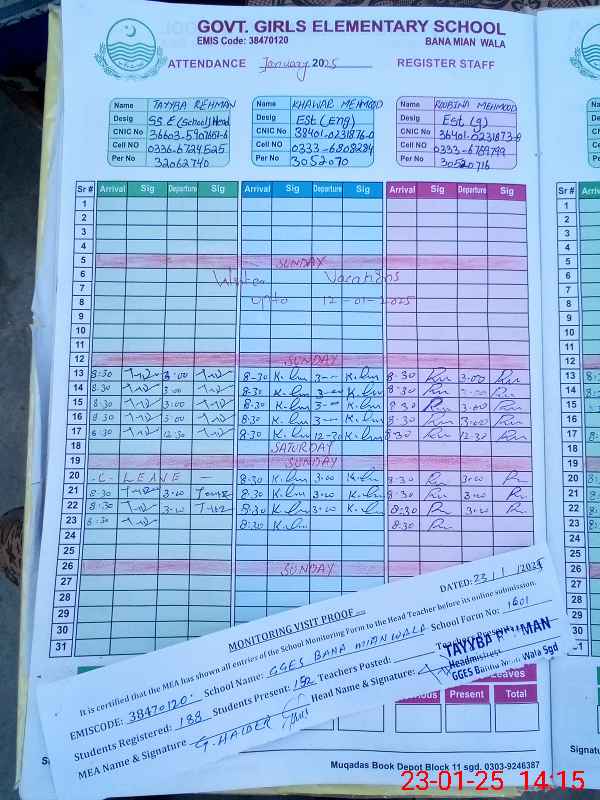 GOVT. GIRLS ELEMENTARY SCHOOL
EMIS Code: 38470120 BANA MIAN WALA
ATTENDANCE January 2025 REGISTER STAFF
Name TAYYBA REHMAN Name KHAWAR MEHMOOD Name ROOBINA MEHMOOD
Desig SS.E (School) Head Desig Est (Eng) Desig Est (g)
CNIC No CNIC No 38401-0231876-0 CNIC No 38401-0231873-8
Cell NO 0336-6724525 Cell NO 0333-6808284 Cell NO 0333-6789799
Per No 32062740 Per No 3052070 Per No 30520716
Sr # Arrival Sig Departure Sig Arrival Sig Departure Sig Arrival Sig Departure Sig Sr #
1 1
2 2
3 3
4 4
5 SUNDAY 5
6 Winter Vacations 6
7 7
8 upto 12-01-2025 8
9 9
10 10
11 11
12 SUNDAY 12
13 8:30 3:00 8-30 K. 3- K. 8-30 3.00 13
14 8.30 3.00 8.30 K. 3-00 K. 8.30 14
15 8.30 3:00 8.30 K. 3-00 K. 8.30 3.00 15
16 8.30 3:00 8.30 K. 3-00 K. 8.30 3.00 16
17 8.30 12:30 8.30 K. 12-30 K. 8.30 12.30 17
18 SATURDAY 18
19 SUNDAY 19
20 C. LEAVE - 8.30 K. 3.00 K. 8.30 3.00 20
21 8.30 3.00 8.30 K. 3.00 K. 8.30 3.00 21
22 8.30 3.00 8.30 K. 3.00 K. 8:30 3.00 22
23 8.30 8:30 K. 8.30 23
24 24
25 25
26 SUNDAY 26
27 27
28 28
29 29
30 30
31
MONITORING VISIT PROOF
DATED: 23/1/2025
It is certified that the MEA has shown all entries of the School Monitoring Form to the Head Teacher before its online submission.
EMISCODE: 38470120. School Name: GGES BANA MIANWALA School Form No: 1601
Students Registered: 188 Students Present: 182 Teachers Posted: Teachers Present
MEA Name & Signature G. HAIDER Head Name & Signature:
TAYYBA REHMAN
Headmistress
GGES Wala Sgd
Leaves
Present Total
Muqadas Book Depot Block 11 sgd. 0303-9246387
23-01-25 14:15